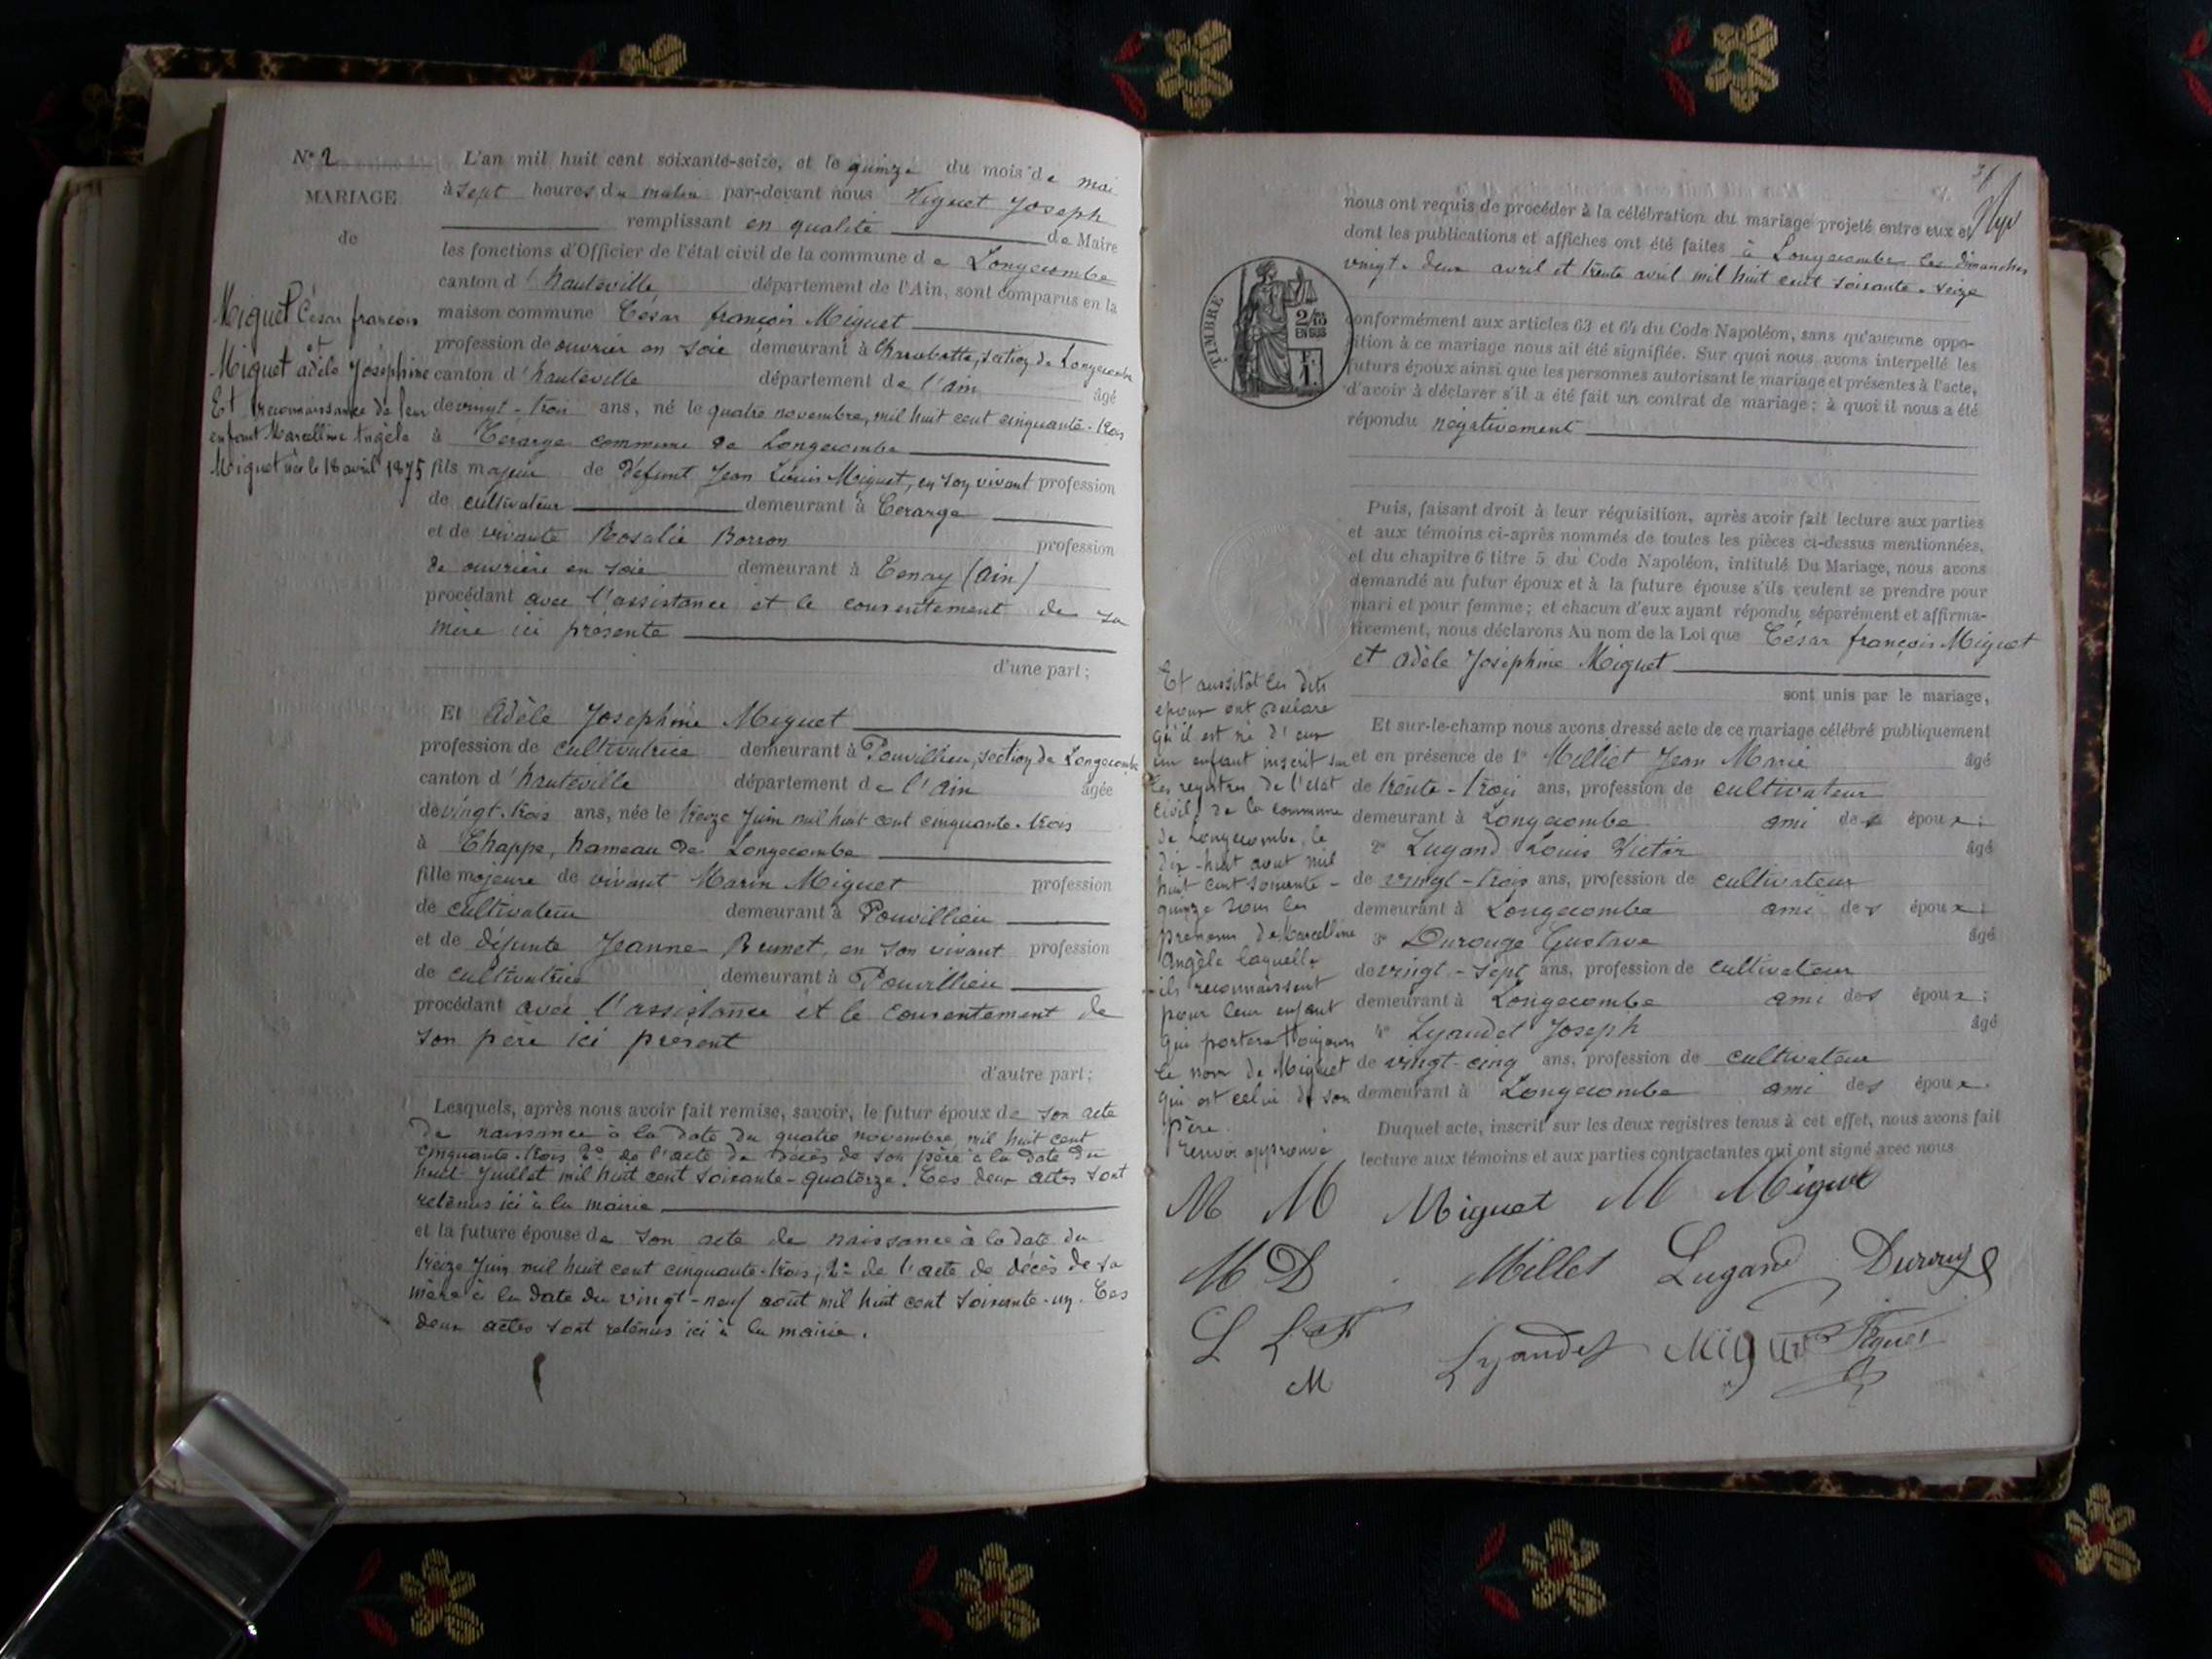 N° 2
MARIAGE
de
Miguet César françois
et
Miguet adèle Joséphine
Et reconnaissance de leur
enfant Marcelline Angèle
Miguet née le 18 avril 1875
L'an mil huit cent soixante-seize, et le quinze du mois de mai
à sept heures du matin par-devant nous Figuet Joseph
remplissant en qualité de Maire
les fonctions d'Officier de l'état civil de la commune de Longecombe
canton d'hauteville département de l'Ain, sont comparus en la
maison commune César françois Miguet
profession de ouvrier en soie demeurant à Charabotte, section de Longecombe
canton d'hauteville département de l'ain âgé
de vingt-trois ans, né le quatre novembre, mil huit cent cinquante-trois
à Cérarge commune de Longecombe
fils majeur de défunt Jean Louis Miguet, en son vivant profession
de cultivateur demeurant à Cerarge
et de vivante Rosalie Borron profession
de ouvrière en soie demeurant à Tenay (Ain)
procédant avec l'assistance et le consentement de sa
mère ici présente
d'une part;
Et Adèle Josephine Miguet
profession de cultivatrice demeurant à Pouvillieu, section de Longecombe
canton d'hauteville département de l'Ain âgée
de vingt-trois ans, née le treize Juin mil huit cent cinquante-trois
à Chappe, hameau de Longecombe
fille majeure de vivant Marin Miguet profession
de cultivateur demeurant à Pouvillieu
et de défunte Jeanne Brunet, en son vivant profession
de cultivatrice demeurant à Pouvillieu
procédant avec l'assistance et le consentement de
son père ici présent
d'autre part;
Lesquels, après nous avoir fait remise, savoir, le futur époux de son acte
de naissance à la date du quatre novembre, mil huit cent
cinquante-trois 2° de l'acte de décès de son père à la date du
huit Juillet mil huit cent soixante-quatorze. Ces deux actes sont
retenus ici à la mairie
et la future épouse de son acte de naissance à la date du
treize Juin mil huit cent cinquante-trois; 2° de l'acte de décès de sa
mère à la date du vingt-neuf août mil huit cent soixante-un. Ces
deux actes sont retenus ici à la mairie.
nous ont requis de procéder à la célébration du mariage projeté entre eux et
dont les publications et affiches ont été faites à Longecombe les dimanches
vingt-deux avril et trente avril mil huit cent soixante-seize
TIMBRE
2/10
EN SUS
conformément aux articles 63 et 64 du Code Napoléon, sans qu'aucune oppo-
sition à ce mariage nous ait été signifiée. Sur quoi nous avons interpellé les
futurs époux ainsi que les personnes autorisant le mariage et présentes à l'acte,
d'avoir à déclarer s'il a été fait un contrat de mariage; à quoi il nous a été
répondu négativement
Puis, faisant droit à leur réquisition, après avoir fait lecture aux parties
et aux témoins ci-après nommés de toutes les pièces ci-dessus mentionnées,
et du chapitre 6 titre 5 du Code Napoléon, intitulé Du Mariage, nous avons
demandé au futur époux et à la future épouse s'ils veulent se prendre pour
mari et pour femme; et chacun d'eux ayant répondu séparément et affirma-
tivement, nous déclarons Au nom de la Loi que César françois Miguet
et Adèle Joséphine Miguet
sont unis par le mariage.
Et sur-le-champ nous avons dressé acte de ce mariage célébré publiquement
et en présence de 1° Milliet Jean Marie âgé
de trente-trois ans, profession de cultivateur
demeurant à Longecombe ami des époux;
2° Lugand Louis Victor âgé
de vingt-trois ans, profession de cultivateur
demeurant à Longecombe ami des époux;
3° Durouge Gustave âgé
de vingt-sept ans, profession de cultivateur
demeurant à Longecombe ami des époux;
4° Lyaudet Joseph âgé
de vingt-cinq ans, profession de cultivateur
demeurant à Longecombe ami des époux.
Duquel acte, inscrit sur les deux registres tenus à cet effet, nous avons fait
lecture aux témoins et aux parties contractantes qui ont signé avec nous
Et aussitôt les dits
époux ont déclaré
qu'il est né d'eux
un enfant inscrit sur
les registres de l'état
civil de la commune
de Longecombe, le
dix-huit avril mil
huit cent soixante-
quinze sous les
prénoms de Marcelline
Angèle laquelle
ils reconnaissent
pour leur enfant
qui portera toujours
le nom de Miguet
qui est celui de son
père.
Renvoi approuvé
M M Miguet M Miguet
M D Milliet Lugand Durouge
L L F Lyaudet Miguet Figuet
M